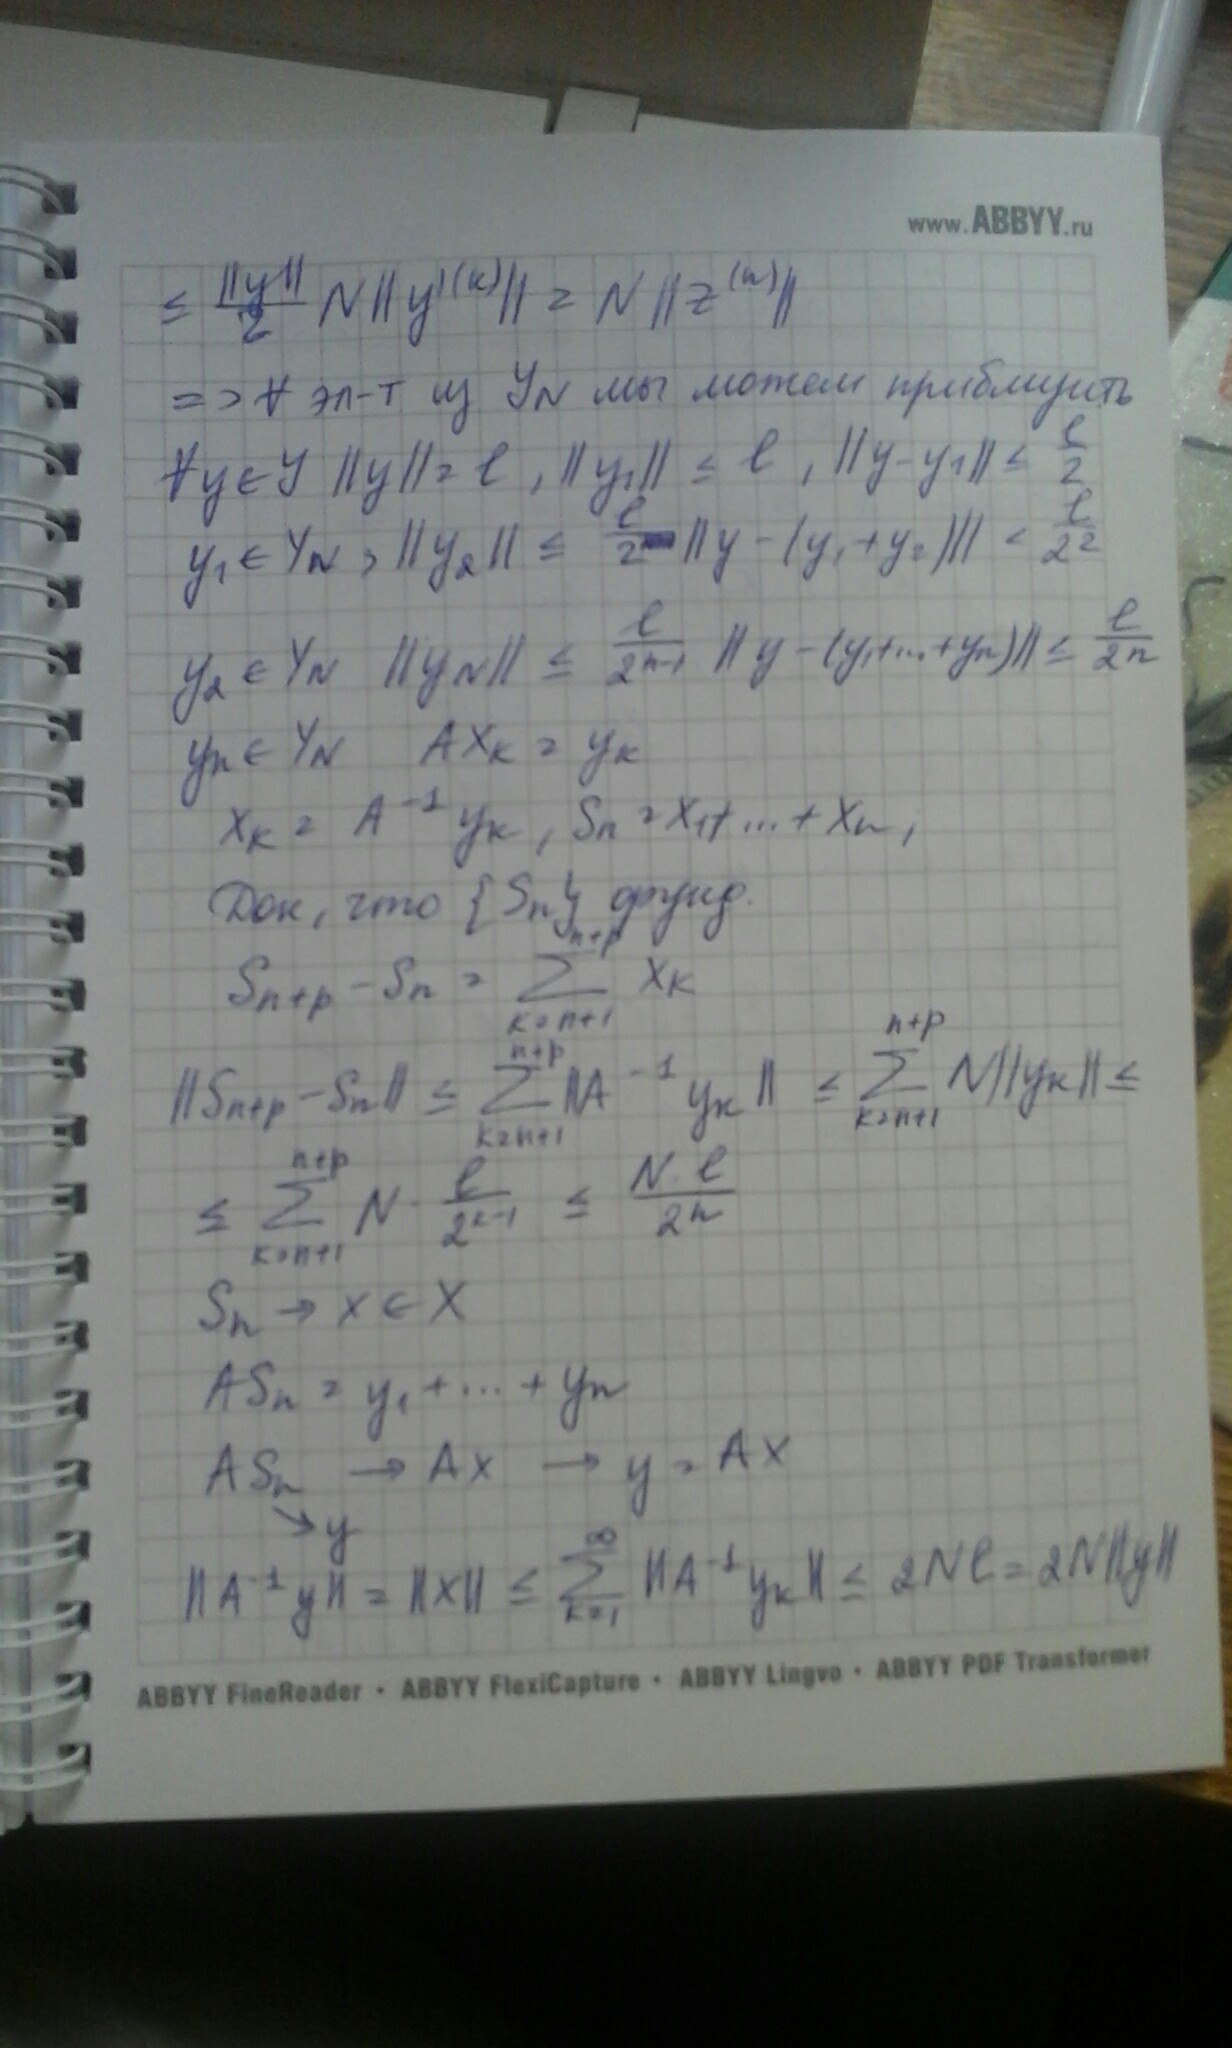 www.ABBYY.ru
≤ ||y||/2 N||y^(k)|| = N||z^(n)||
=> ∀ эл-т из Y_N мы можем приблизить
∀y∈Y ||y|| = l, ||y₁|| ≤ l, ||y-y₁|| ≤ l/2
y₁ ∈ Y_N, ||y₂|| ≤ l/2 ||y-(y₁+y₂)|| < l/2²
y₂ ∈ Y_N ||y_N|| ≤ l/2^(n-1) ||y-(y₁+...+y_n)|| ≤ l/2^n
y_n ∈ Y_N A x_k = y_k
x_k = A^(-1) y_k, S_n = x₁+...+x_n,
Док, что {S_n} фунд.
S_(n+p) - S_n = ∑_(k=n+1)^(n+p) x_k
||S_(n+p) - S_n|| ≤ ∑_(k=n+1)^(n+p) ||A^(-1) y_k|| ≤ ∑_(k=n+1)^(n+p) N||y_k|| ≤
≤ ∑_(k=n+1)^(n+p) N · l/2^(k-1) ≤ N·l/2^n
S_n → x ∈ X
A S_n = y₁ + ... + y_n
A S_n → A x → y = A x
↘ y
||A^(-1) y|| = ||x|| ≤ ∑_(k=1)^∞ ||A^(-1) y_k|| ≤ 2Nl = 2N||y||
ABBYY FineReader • ABBYY FlexiCapture • ABBYY Lingvo • ABBYY PDF Transformer